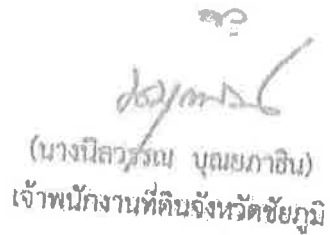 (นางนิลวรรณ บุณยภาฮิน)
เจ้าพนักงานที่ดินจังหวัดชัยภูมิ